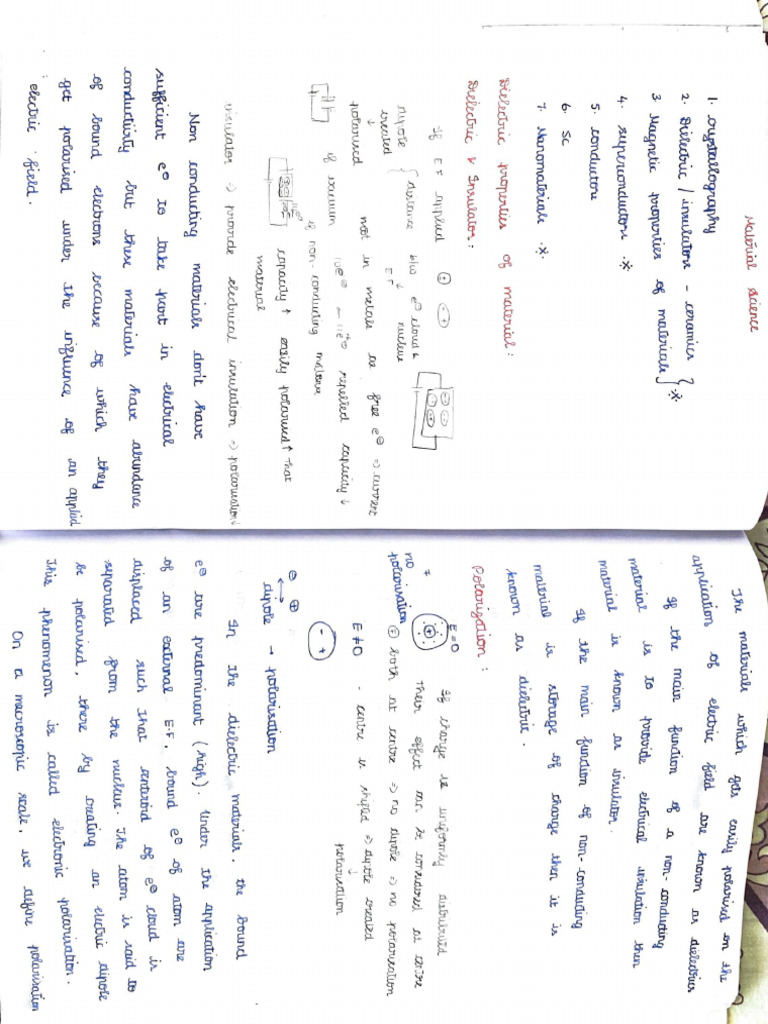 Material Science
1. Crystallography
2. Dielectric / insulators - ceramics
3. Magnetic properties of materials } *
4. Superconductors *
5. Conductors
6. SC
7. Nanomaterials *
Dielectric properties of material :
Dielectric & Insulator :
If EF applied
dipole created { distance b/w e⊖ cloud & nucleus
↓ EF
polarised not in metals free e⊖ ⇒ current
if vacuum 10e⊖ repelled capacity ↓
if non-conducting
capacity ↑ easily polarised ↑ that
material
insulator ⇒ provide electrical insulation ⇒ polarisation ↓
Non conducting materials don't have
sufficient e⊖ to take part in electrical
conductivity but these materials have abundance
of bound electrons because of which they
get polarised under the influence of an applied
electric field.
The materials which gets easily polarised on the
application of electric field are known as dielectrics
If the main function of a non-conducting
material is to provide electrical insulation then
material is known as insulator.
If the main function of non-conducting
material is storage of charge then it is
known as dielectric.
Polarization :
E=0
If charge is uniformly distributed
their effect can be considered at centre
no polarisation
⊕ both at centre ⇒ no dipole ⇒ no polarisation
E ≠ 0 - centre is shifted ⇒ dipole created
↓
polarisation
- +
⊖ ⊕
↔
dipole → polarisation
In the dielectric materials, the bound
e⊖ are predominant (high). Under the application
of an external E.F, bound e⊖ of atom are
displaced such that centroid of e⊖ cloud is
separated from the nucleus. The atom is said to
be polarised, there by creating an electric dipole
This phenomenon is called electronic polarisation.
On a macroscopic scale, we define polarisation